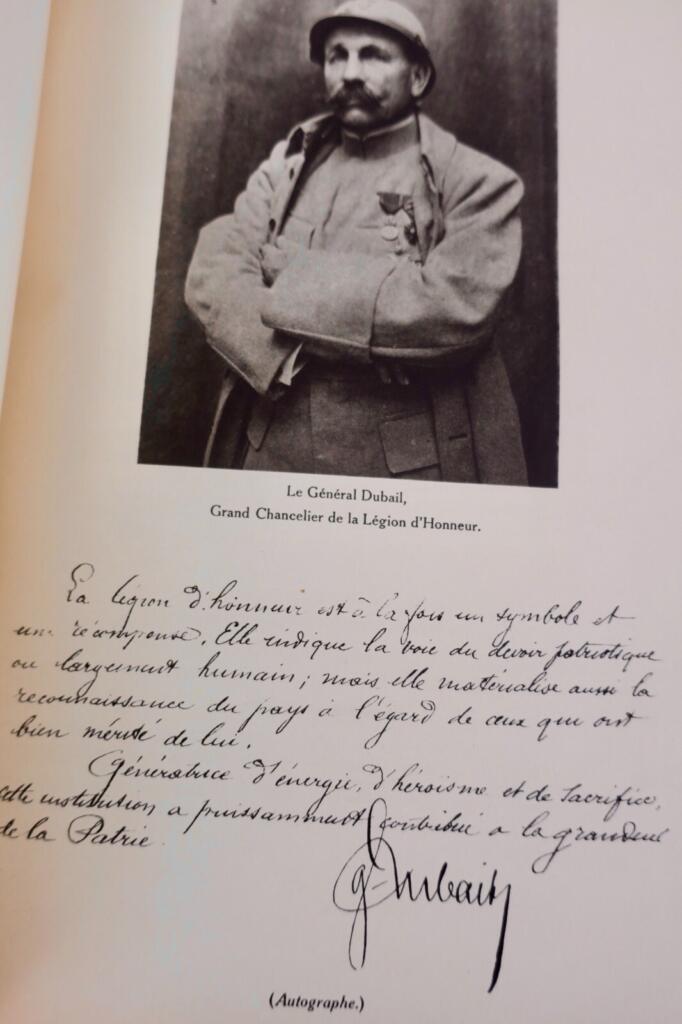 Le Général Dubail,
Grand Chancelier de la Légion d'Honneur.
La légion d'honneur est à la fois un symbole et
une récompense. Elle indique la voie du devoir patriotique
ou largement humain ; mais elle matérialise aussi la
reconnaissance du pays à l'égard de ceux qui ont
bien mérité de lui.
Génératrice d'énergie, d'héroïsme et de sacrifice,
cette institution a puissamment contribué à la grandeur
de la Patrie.
G. Dubail
(Autographe.)